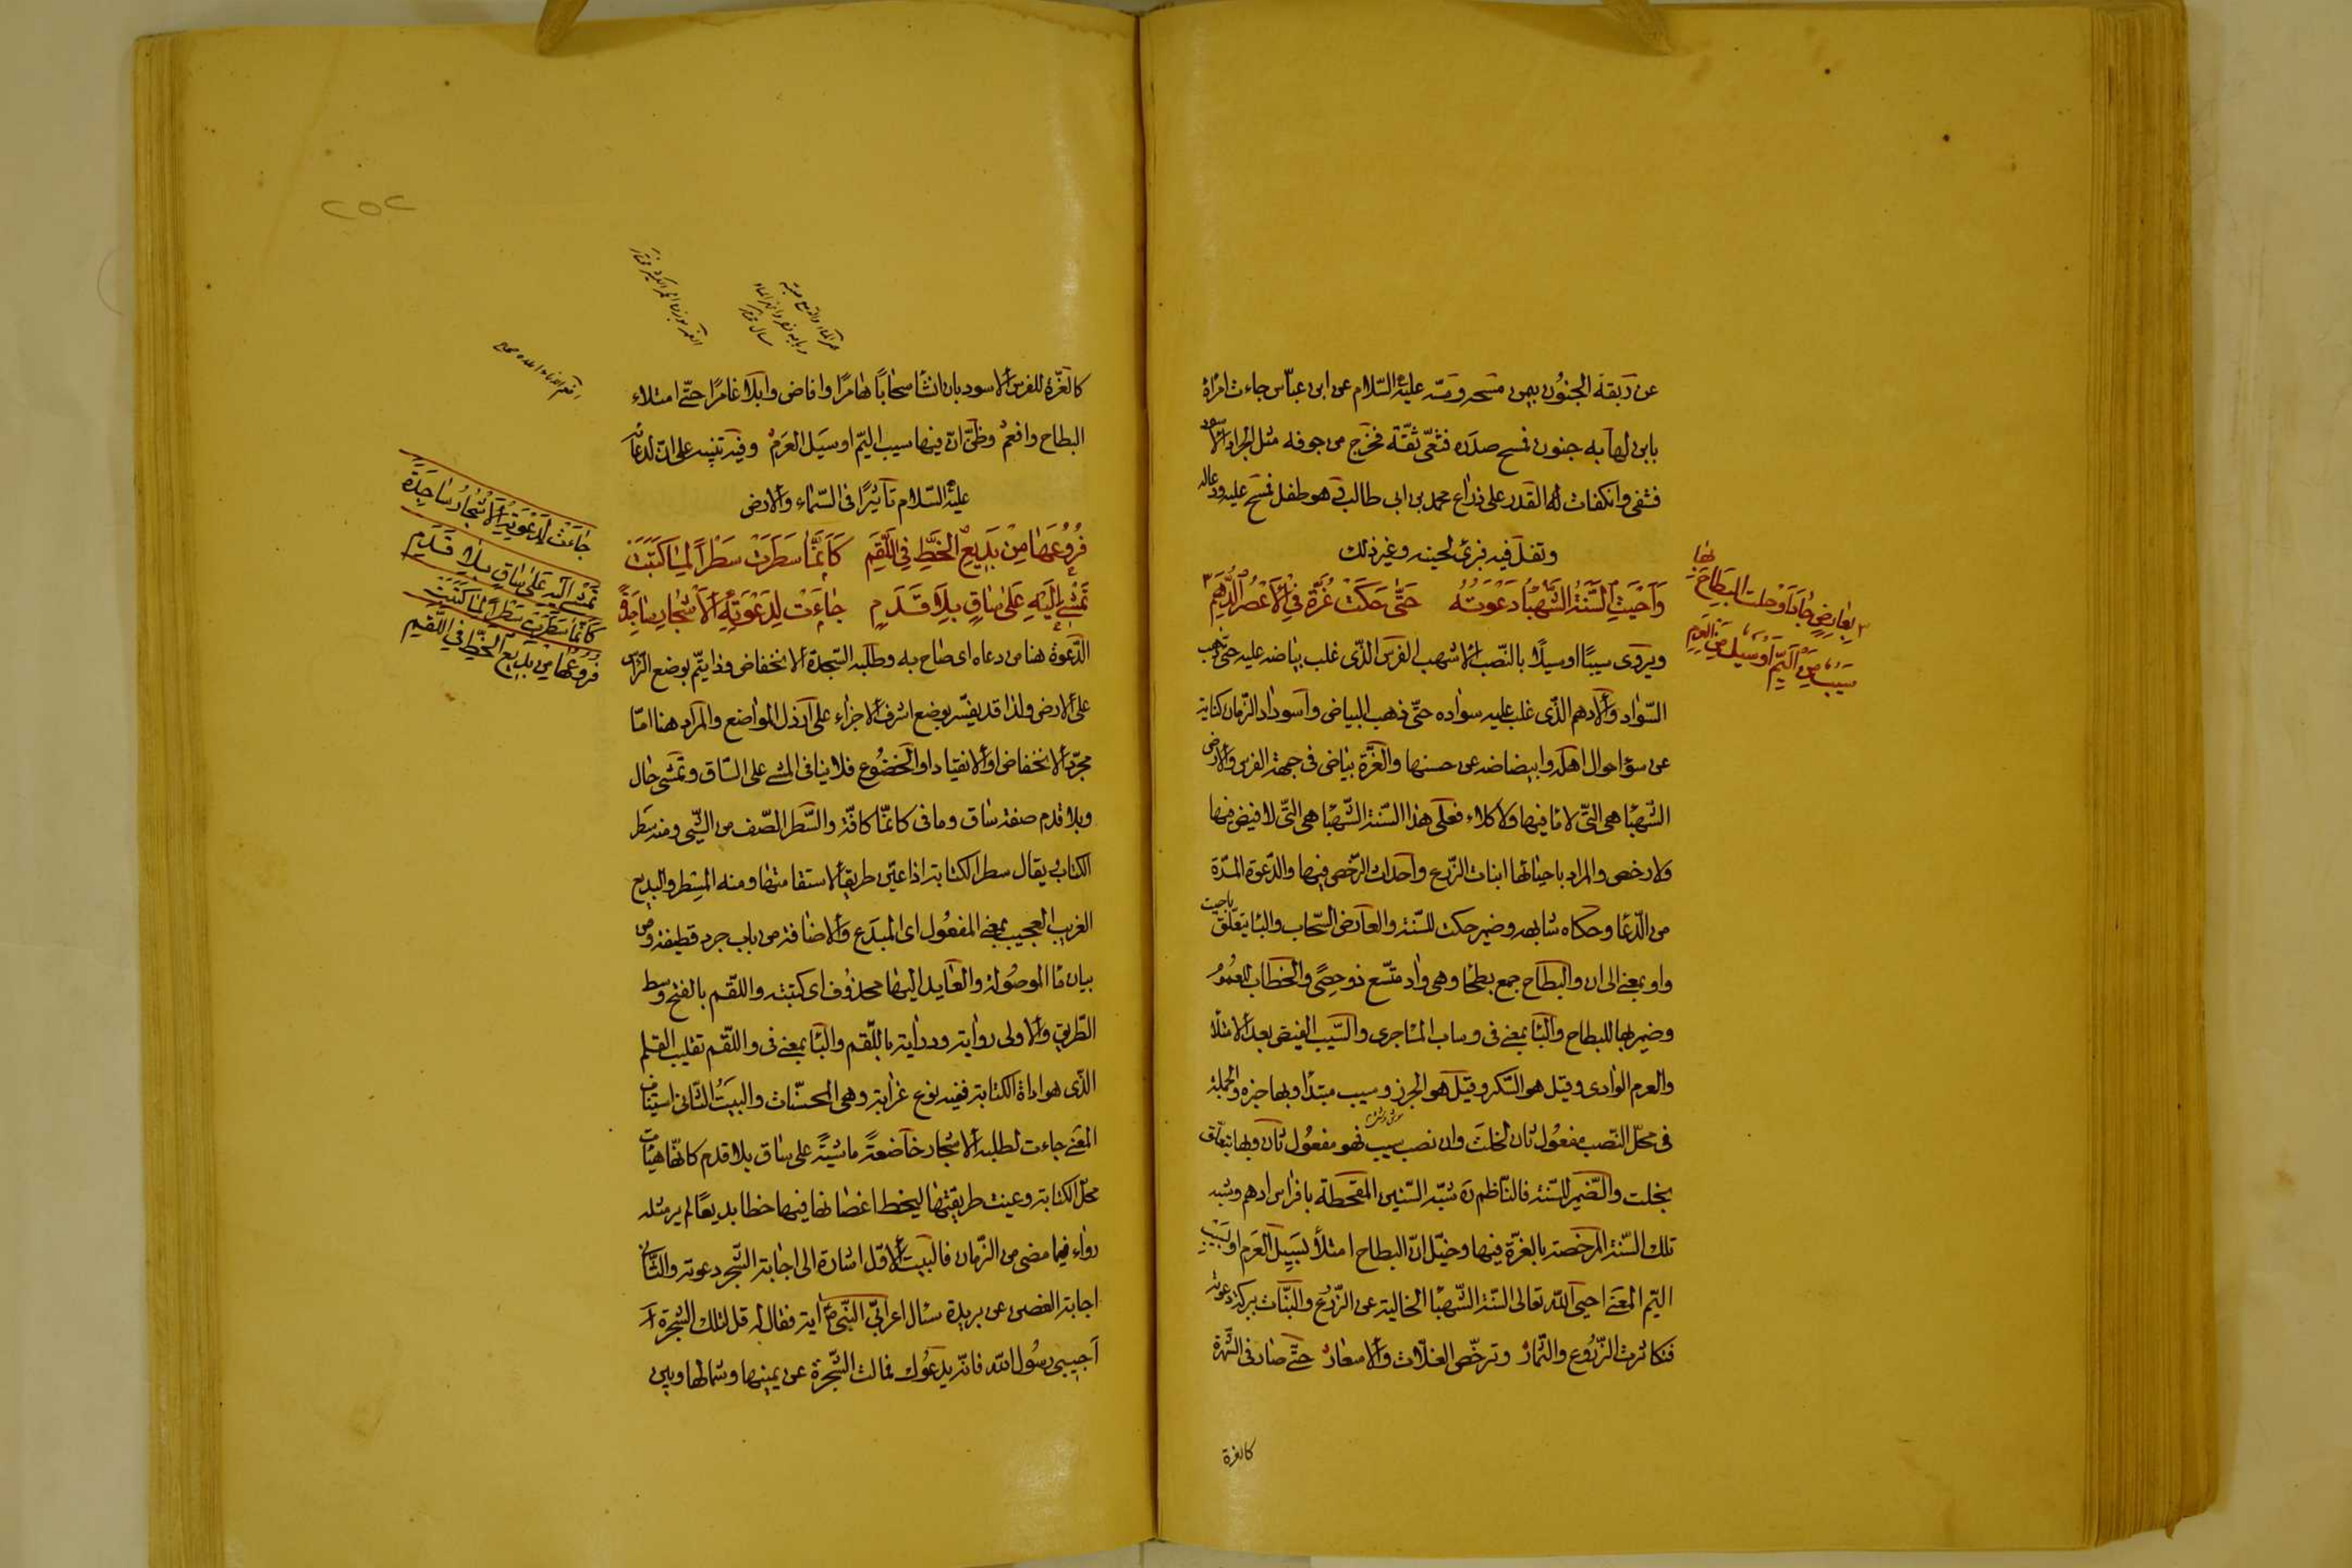 عن ربقة الجنون بيمن مسحه ومسّه عليه السّلام عن ابن عبّاس جاءت امرأة
بابن لها به جنون فمسح صدره فثعّ ثعّة فخرج من جوفه مثل الجراد الاسود
فشفى وانكفات له القدر على ذراع محمد بن ابى طالب وهو طفل فمسح عليه ودعاله
وتفل فيه فبرئ لحينه وغير ذلك
وَاَحْيَتِ السَّنَةَ الشَّهْبَاءَ دَعْوَتُهُ حَتّٰى حَكَتْ غُرَّةً فِي الْاَعْصُرِ الدُّهُمِ
بِعَارِضٍ جَادَ اَوْ خِلْتَ الْبِطَاحَ بِهَا
سَيْبٌ مِنَ الْيَمِّ اَوْ سَيْلٌ مِنَ الْعَرِمِ
ويروى سيبًا او سيلًا بالنّصب الاشهب الفرس الذّى غلب بياضه عليه حتّى ذهب
السّواد والادهم الذّى غلب عليه سواده حتّى ذهب البياض واسوداد الزّمان كناية
عن سوٓء احوال اهله وابيضاضه عن حسنها والغرّة بياض فى جبهة الفرس والارض
الشّهبا هى التّى لا ما فيها ولا كلاء فعلى هذا السّنة الشّهبا هى التّى لا فيض فيها
ولا رخص والمراد باحيائها انبات الزّرع واحداث الرّخص فيها والدّعوة المرّة
من الدّعا وحكاه شابهه وضمير حكت للسّنة والعارض السّحاب والبا يتعلّق باحيت
واو بمعنى الى ان والبطاح جمع بطحا وهى واد متّسع ذو حصًى والخطاب للعموم
وضمير بها للبطاح والبا بمعنى فى وساب الما جرى والسّيب الفيض بعد الامتلا
والعرم الوادى وقيل هو السّكر وقيل هو الجرذ وسيب مبتدا وبها خبره والجملة
فى محلّ النّصب مفعول ثان لخلت وان نصب سيب فهو مفعول ثان وبها يتعلّق
بخلت والضّمير للسّنة فالنّاظم ره شبّه السّنين المقحطة بافراس ادهم وشبه
تلك السّنة المرخصة بالغرّة فيها وخيّل انّ البطاح امتلأ بسيل العرم او بسيب
اليّم المعنى احيى اللّه تعالى السّنة الشّهبا الخالية عن الزّرع والنّبات ببركة دعوته
فتكاثرت الزّروع والثّمار وترخّص الغلّات والاسعار حتّى صار فى الشّهرة
كالغرة
٢٥٢
كالغرّة للفرس الاسود بان انشأ سحابًا هامرًا وافاض وابلا غامرًا حتّى امتلاء
البطاح وافعم وظنّ انّ فيها سيب اليّم او سيل العرم وفيه تنبيه على انّ لدعائه
عليه السّلام تأثيرًا فى السّماء والارض
جَاءَتْ لِدَعْوَتِهِ الْاَشْجَارُ سَاجِدَةً
تَمْشِى اِلَيْهِ عَلٰى سَاقٍ بِلَا قَدَمٍ
كَاَنَّمَا سَطَرَتْ سَطْرًا لِمَا كَتَبَتْ
فُرُوعُهَا مِنْ بَدِيعِ الْخَطِّ فِى اللَّقَمِ
فُرُوعُهَا مِنْ بَدِيعِ الْخَطِّ فِى اللَّقَمِ كَاَنَّمَا سَطَرَتْ سَطْرًا لِمَا كَتَبَتْ
تَمْشِى اِلَيْهِ عَلٰى سَاقٍ بِلَا قَدَمٍ جَاءَتْ لِدَعْوَتِهِ الْاَشْجَارُ سَاجِدَةً
الدّعوة هنا من دعاه اى صاح به وطلبه السّجدة الانخفاض وذا يتمّ بوضع الرّاس
على الارض ولذا قد يفسّر بوضع اشرف الاجزاء على ارذل المواضع والمراد هنا امّا
مجرّد الانخفاض او الانقياد او الخضوع فلا ينافى المشى على السّاق وتمشى حال
وبلا قدم صفة ساق وما فى كانّما كافّة والسّطر الصّف من الشّيى ومنه سطر
الكتاب يقال سطر الكتابة اذا عيّن طريق الاستقامتها ومنه المسطر والبديع
الغريب العجيب بمعنى المفعول اى المبدع والاضافة من باب جرد قطيفة ومن
بيان ما الموصولة والعايد اليها محذوف اى كتبته واللقم بالفتح وسط
الطّريق والاولى رواية ودراية باللّقم والبا بمعنى فى واللقم تقليب القلم
الذّى هو اداة الكتابة ففيه نوع غرابة وهى المحسّنات والبيت الثّانى استيناف
المعنى جاءت لطلبه الاشجار خاضعةً ماشيةً على ساق بلا قدم كانّها هيّات
محلّ الكتابة وعينت طريقتها ليخط اغصانها فيها خطا بديعًا لم ير مثله
رواء فيما مضى من الزّمان فالبيت الاوّل اشارة الى اجابة الشّجر دعوته والثّانى
اجابة الغصن عن بريدة سال اعرابىّ النّبىّ آية فقال له قل لتلك الشّجرة
اجيبى رسول اللّه فانّه يدعوك فمالت الشّجرة عن يمينها وشمالها وبين